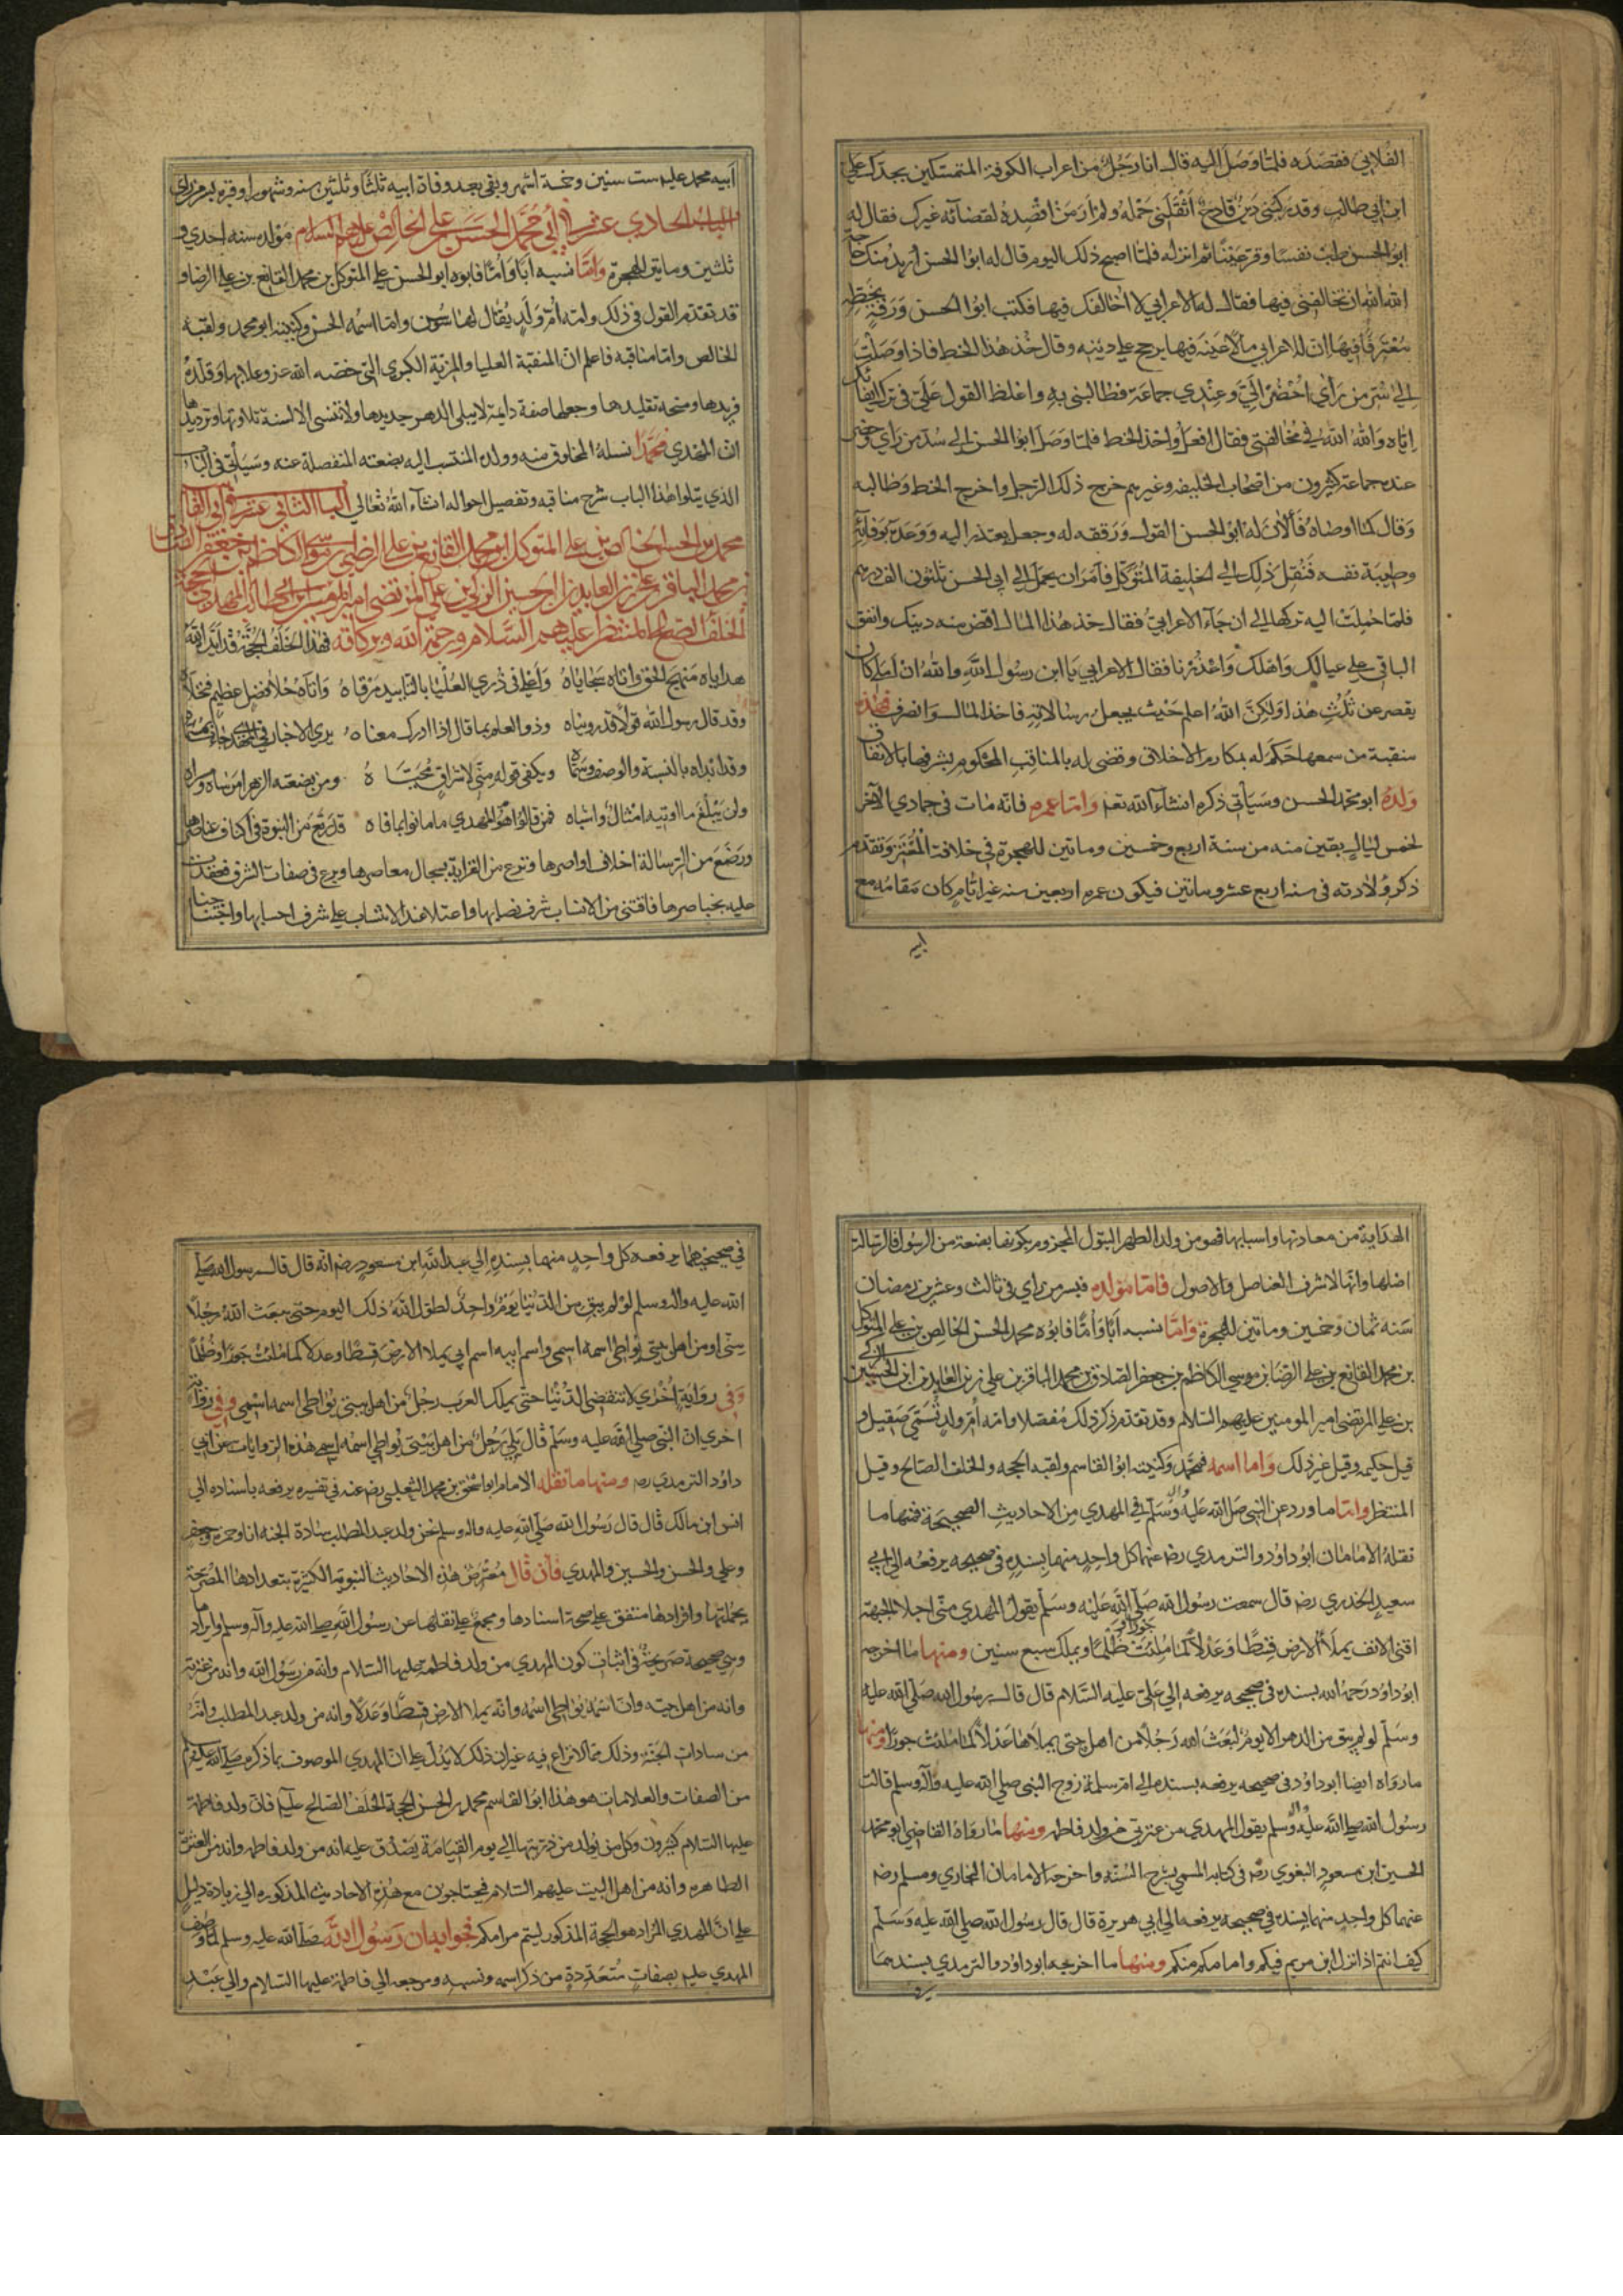 الفلاني فقصده فلما وصل اليه قال انا رجل من اعراب الكوفة المتمسكين بجدك علي
ابن ابي طالب وقد ركبني دين فادح اثقلني حمله ولم ار من اقصده لقضائه غيرك فقال له
ابو الحسن طب نفسا وقر عينا ثم انزله فلما اصبح ذلك اليوم قال له ابو الحسن اريد منك حاجة
الله الله ان تخالفني فيها فقال له الاعرابي لا اخالفك فيها فكتب ابو الحسن ورقة بخطه
معترفا فيها ان للاعرابي مالا عينه فيها يرجح على دينه وقال خذ هذا الخط فاذا وصلت
الى سر من رأى احضر الي وعندي جماعة فطالبني به واغلظ القول علي في ترك ايفائك
اياه والله الله في مخالفتي فقال افعل واخذ الخط فلما وصل ابو الحسن الى سر من راى وحضر
عنده جماعة كثيرون من اصحاب الخليفة وغيرهم خرج ذلك الرجل واخرج الخط وطالبه
وقال كما اوصاه فألان له ابو الحسن القول ورققه له وجعل يعتذر اليه ووعده بوفائه
وطيبة نفسه فنقل ذلك الى الخليفة المتوكل فامر ان يحمل الى ابي الحسن ثلثون الف درهم
فلما حملت اليه تركها الى ان جاء الاعرابي فقال خذ هذا المال اقض منه دينك وانفق
الباقي على عيالك واهلك واعذرنا فقال الاعرابي يا ابن رسول الله والله ان املي كان
يقصر عن ثلث هذا ولكن الله اعلم حيث يجعل رسالاته فاخذ المال وانصرف فهذه
منقبة من سمعها حكم له بمكارم الاخلاق وقضى له بالمناقب المحكوم بشرفها بالاتفاق
ولده ابو محمد الحسن وسيأتي ذكره انشاء الله تعا واما عمره فانه مات في جمادي الآخر
لخمس ليال بقين منه من سنة اربع وخمسين وماتين للهجرة في خلافة المعتز وتقدم
ذكر ولادته في سنه اربع عشر وماتين فيكون عمره اربعين سنه غير ايام كان مقامه مع
ابيه
ابيه محمد عليه ست سنين وخمسة اشهر وبقى بعد وفاة ابيه ثلثا وثلثين سنه وشهورا وقبره بسر من راى
الباب الحادي عشر في ابي محمد الحسن بن علي الخالص عليهم السلام مولده سنه احدي و
ثلثين وماتين للهجرة واما نسبه ابا واما فابوه ابو الحسن علي المتوكل بن محمد القانع بن علي الرضا و
قد تقدم القول في ذلك وامه ام ولد يقال لها سوسن واما اسمه الحسن وكنيته ابو محمد ولقبه
الخالص واما مناقبه فاعلم ان المنقبة العليا والمزية الكبرى التي خصه الله عز وعلا بها وقلده
فريدها ومنحه تقليدها وجعلها صفة دايمة لا يبلى الدهر جديدها ولا تنسى الالسنة تلاوتها وترديدها
ان المهدي محمدا نسله المخلوق منه وولده المنتسب اليه بضعته المنفصلة عنه وسيأتي في الباب
الذي يتلوا هذا الباب شرح مناقبه وتفصيل احواله انشاء الله تعالى الباب الثاني عشر في ابي القاسم
محمد بن الحسن الخالص بن علي المتوكل ابن محمد القانع بن علي الرضا بن موسى الكاظم بن جعفر الصادق
بن محمد الباقر بن علي زين العابدين ابن الحسين الزكي بن علي المرتضى امير المؤمنين ابن ابي طالب المهدي الحجة
الخلف الصالح المنتظر عليهم السلام ورحمة الله وبركاته فهذا الخلف الحجة قد ايده الله
هداياه منهج الحق واتاه سجاياه واعلى في ذري العليا بالتاييد مرقاه واتاه حلا فضل عظيم فتحلاه
وقد قال رسول الله قولا قد رويناه وذو العلم بما قال اذا ادرك معناه يرى الاخبار في المهدي جاءت بمسماه
وقد ابداه بالنسبة والوصف وسماه ويكفي قوله مني لاشراق محياه ومن بضعته الزهرا مرساه ومسراه
ولن يبلغ ما اوتيه امثال واشباه فمن قالوا هو المهدي ما مانوا بما فاه قد رتع من النبوة في اكناف عناصرها
ورضع من الرسالة اخلاف اواصرها وترع من القرابة بسجال معاصرها وبرع في صفات الشرف فعقدت
عليه بخناصرها فاقتنى من الانساب شرف نصابها واعتلا عند الانتساب على شرف احسابها واجتنا جنا
الهداية من معادنها واسبابها فهو من ولد الطهر البتول المجزوم بكونها بضعة من الرسول فالرسالة
اصلها وانها لاشرف العناصر والاصول فاما مولده فبسر من راى في ثالث وعشرين رمضان
سنه ثمان وخمسين وماتين للهجرة واما نسبه ابا واما فابوه محمد الحسن الخالص بن علي المتوكل
بن محمد القانع بن علي الرضا بن موسى الكاظم بن جعفر الصادق بن محمد الباقر بن علي زين العابدين ابن الحسين الزكي
بن علي المرتضى امير المومنين عليهم السلام وقد تقدم ذكر ذلك مفصلا وامه ام ولد تسمى صقيل و
قيل حكيمه وقيل غير ذلك واما اسمه فمحمد وكنيته ابو القاسم ولقبه الحجه والخلف الصالح وقيل
المنتظر واما ما ورد عن النبي صلى الله عليه واله وسلم في المهدي من الاحاديث الصحيحة فمنها ما
نقله الامامان ابو داود والترمدي رضه عنهما كل واحد منهما بسنده في صحيحه يرفعه الى ابي
سعيد الخدري رضه قال سمعت رسول الله صلى الله عليه وسلم يقول المهدي مني اجلا الجبهة
اقنى الانف يملأ الارض قسطا وعدلا كما ملئت جورا و ظلما ويملك سبع سنين ومنها ما اخرجه
ابو داود رحمه الله بسنده في صحيحه يرفعه الى علي عليه السلام قال قال رسول الله صلى الله عليه
وسلم لو لم يبق من الدهر الا يوم لبعث الله رجلا من اهل بيتي يملاها عدلا كما ملئت جورا ومنها
ما رواه ايضا ابو داود في صحيحه يرفعه بسنده الى ام سلمة زوج النبي صلى الله عليه وآله وسلم قالت
رسول الله صلى الله عليه واله وسلم يقول المهدي من عترتي من ولد فاطمه ومنها ما رواه القاضي ابو محمد
الحسين ابن مسعود البغوي رضه في كتابه المسمى بشرح السنه واخرجه الامامان البخاري ومسلم رضه
عنهما كل واحد منهما بسنده في صحيحه يرفعه الى ابي هريرة قال قال رسول الله صلى الله عليه وسلم
كيف انتم اذا نزل ابن مريم فيكم وامامكم منكم ومنها ما اخرجه ابو داود والترمدي بسندهما
في صحيحيهما يرفعه كل واحد منهما بسنده الى عبد الله ابن مسعود رضه انه قال قال رسول الله صلى
الله عليه واله وسلم لو لم يبق من الدنيا يوم واحد لطول الله ذلك اليوم حتى يبعث الله رجلا
مني او من اهل بيتي يواطي اسمه اسمي واسم ابيه اسم ابي يملا الارض قسطا وعدلا كما ملئت جورا وظلما
وفي رواية اخري لا تنقضي الدنيا حتى يملك العرب رجل من اهل بيتي يواطي اسمه اسمي وفي رواية
اخري ان النبي صلى الله عليه وسلم قال يلي رجل من اهل بيتي يواطي اسمه اسمي هذه الروايات عن ابي
داود الترمدي رضه ومنها ما نقله الامام ابو اسحق بن محمد الثعلبي رضه عنه في تفسيره يرفعه باسناده الى
انس ابن مالك قال قال رسول الله صلى الله عليه واله وسلم نحن ولد عبد المطلب سادة الجنه انا وحمزه وجعفر
وعلي والحسن والحسين والمهدي فان قال معترض هذه الاحاديث النبوية الكثيرة بتعدادها المصرحة
بجملتها وافرادها متفق على صحة اسنادها ومجمع على نقلها عن رسول الله صلى الله عليه وآله وسلم وايرادها
وهي صحيحة صريحة في اثبات كون المهدي من ولد فاطمة عليها السلام وانه من رسول الله وانه من عترته
وانه من اهل بيته وان اسمه يواطي اسمه وانه يملا الارض قسطا وعدلا وانه من ولد عبد المطلب وانه
من سادات الجنة وذلك مما لا نزاع فيه غير ان ذلك لا يدل على ان المهدي الموصوف بما ذكره صلى الله عليه وسلم
من الصفات والعلامات هو هذا ابو القاسم محمد بن الحسن الحجة الخلف الصالح عليه فان ولد فاطمة
عليها السلام كثيرون وكل من يولد من ذريتها الى يوم القيامة يصدق عليه انه من ولد فاطمه وانه من العترة
الطاهره وانه من اهل البيت عليهم السلام فيحتاجون مع هذه الاحاديث المذكوره الى زيادة دليل
على ان المهدي المراد هو الحجة المذكور ليتم مرامكم فجوابه ان رسول الله صلى الله عليه وسلم لما وصف
المهدي عليه بصفات متعددة من ذكر اسمه ونسبه ومرجعه الى فاطمة عليها السلام والى عبد